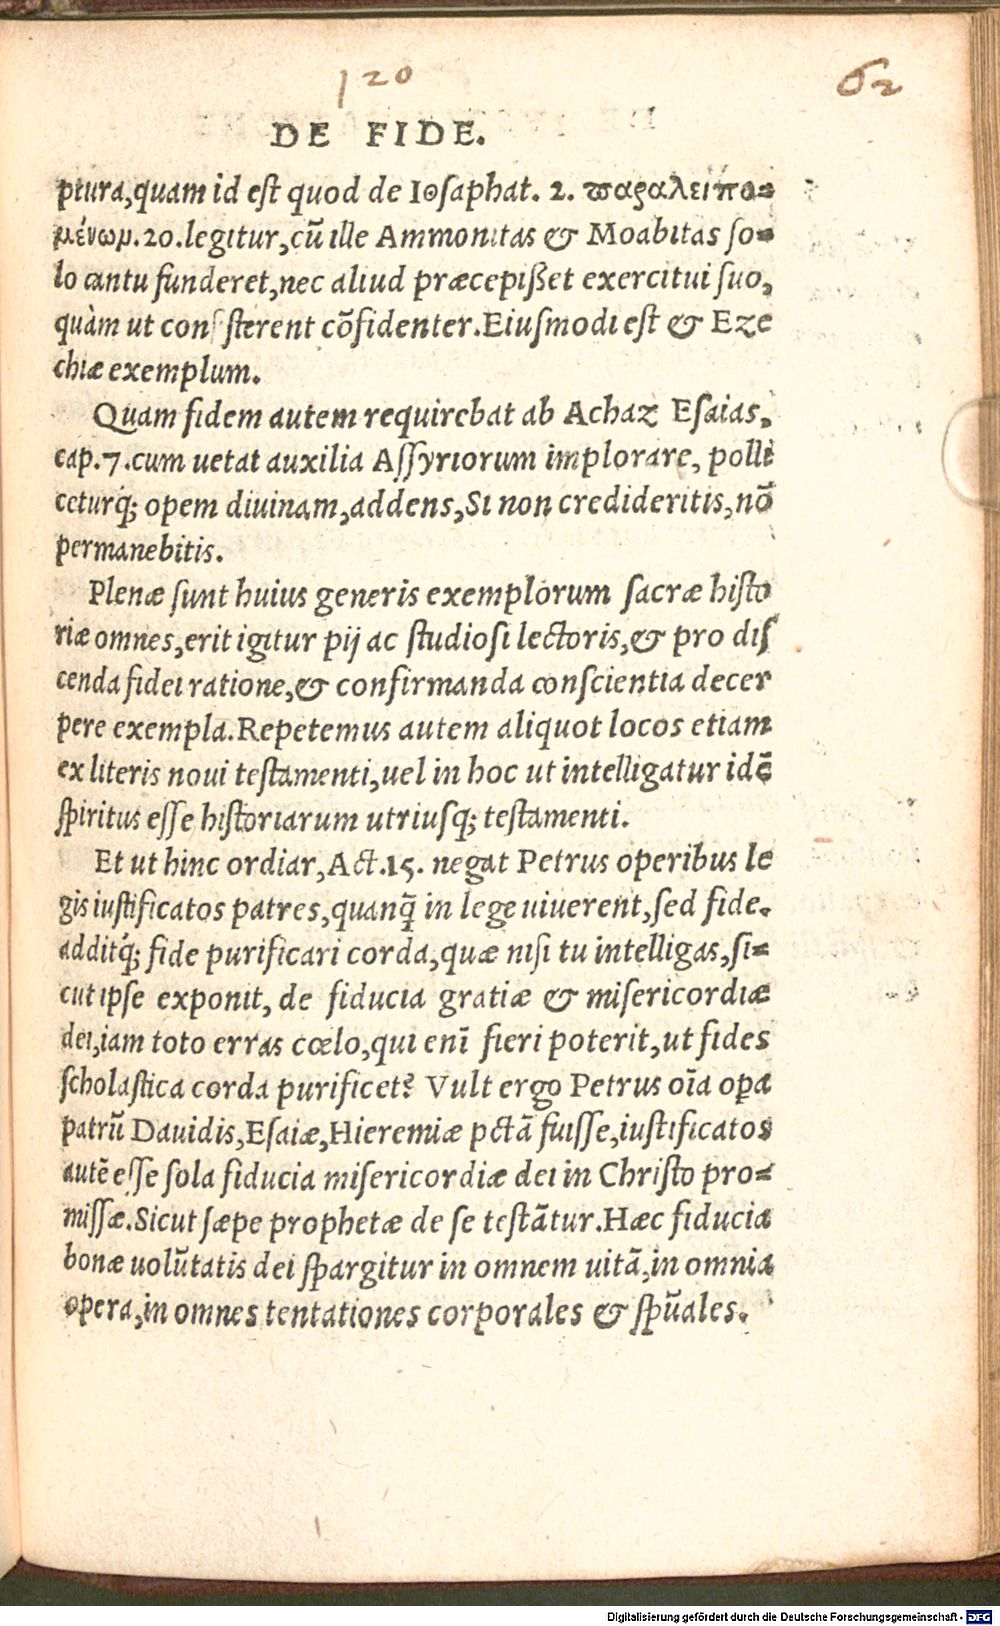 120
62
DE FIDE.
ptura, quam id est quod de Iosaphat. 2. παραλειπο=
μένωμ. 20. legitur, cū ille Ammonitas & Moabitas so=
lo cantu funderet, nec aliud præcepisset exercitui suo,
quàm ut consisterent cōfidenter. Eiusmodi est & Eze
chiæ exemplum.
Quam fidem autem requirebat ab Achaz Esaias,
cap. 7. cum uetat auxilia Assyriorum implorare, polli
ceturq; opem diuinam, addens, Si non credideritis, nō
permanebitis.
Plenæ sunt huius generis exemplorum sacræ histo
riæ omnes, erit igitur pij ac studiosi lectoris, & pro dis
cenda fidei ratione, & confirmanda conscientia decer
pere exempla. Repetemus autem aliquot locos etiam
ex literis noui testamenti, uel in hoc ut intelligatur idē
spiritus esse historiarum utriusq; testamenti.
Et ut hinc ordiar, Act. 15. negat Petrus operibus le
gis iustificatos patres, quanq̄ in lege uiuerent, sed fide.
additq́; fide purificari corda, quæ nisi tu intelligas, si=
cut ipse exponit, de fiducia gratiæ & misericordiæ
dei, iam toto erras cœlo, qui enī fieri poterit, ut fides
scholastica corda purificet? Vult ergo Petrus oīa oꝑa
patrū Dauidis, Esaiæ, Hieremiæ pctā fuisse, iustificatos
autē esse sola fiducia misericordiæ dei in Christo pro=
missæ. Sicut sæpe prophetæ de se testātur. Hæc fiducia
bonæ uolūtatis dei spargitur in omnem uitā, in omnia
opera, in omnes tentationes corporales & spūales.
Digitalisierung gefördert durch die Deutsche Forschungsgemeinschaft - DFG